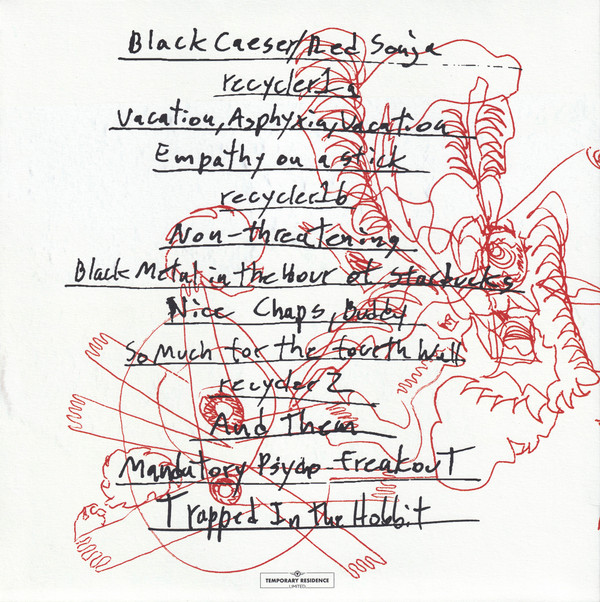 Black Caeser/Red Sonja
recycler1a
Vacation, Asphyxia, Vacation
Empathy on a stick
recycler1b
Non-threatening
Black Metal in the Hour of Starbucks
Nice Chaps, Buddy
So Much for the fourth Wall
recycler 2
And Them
Mandatory Psycho-FreakouT
Trapped In the Hobbit
TEMPORARY RESIDENCE
LIMITED